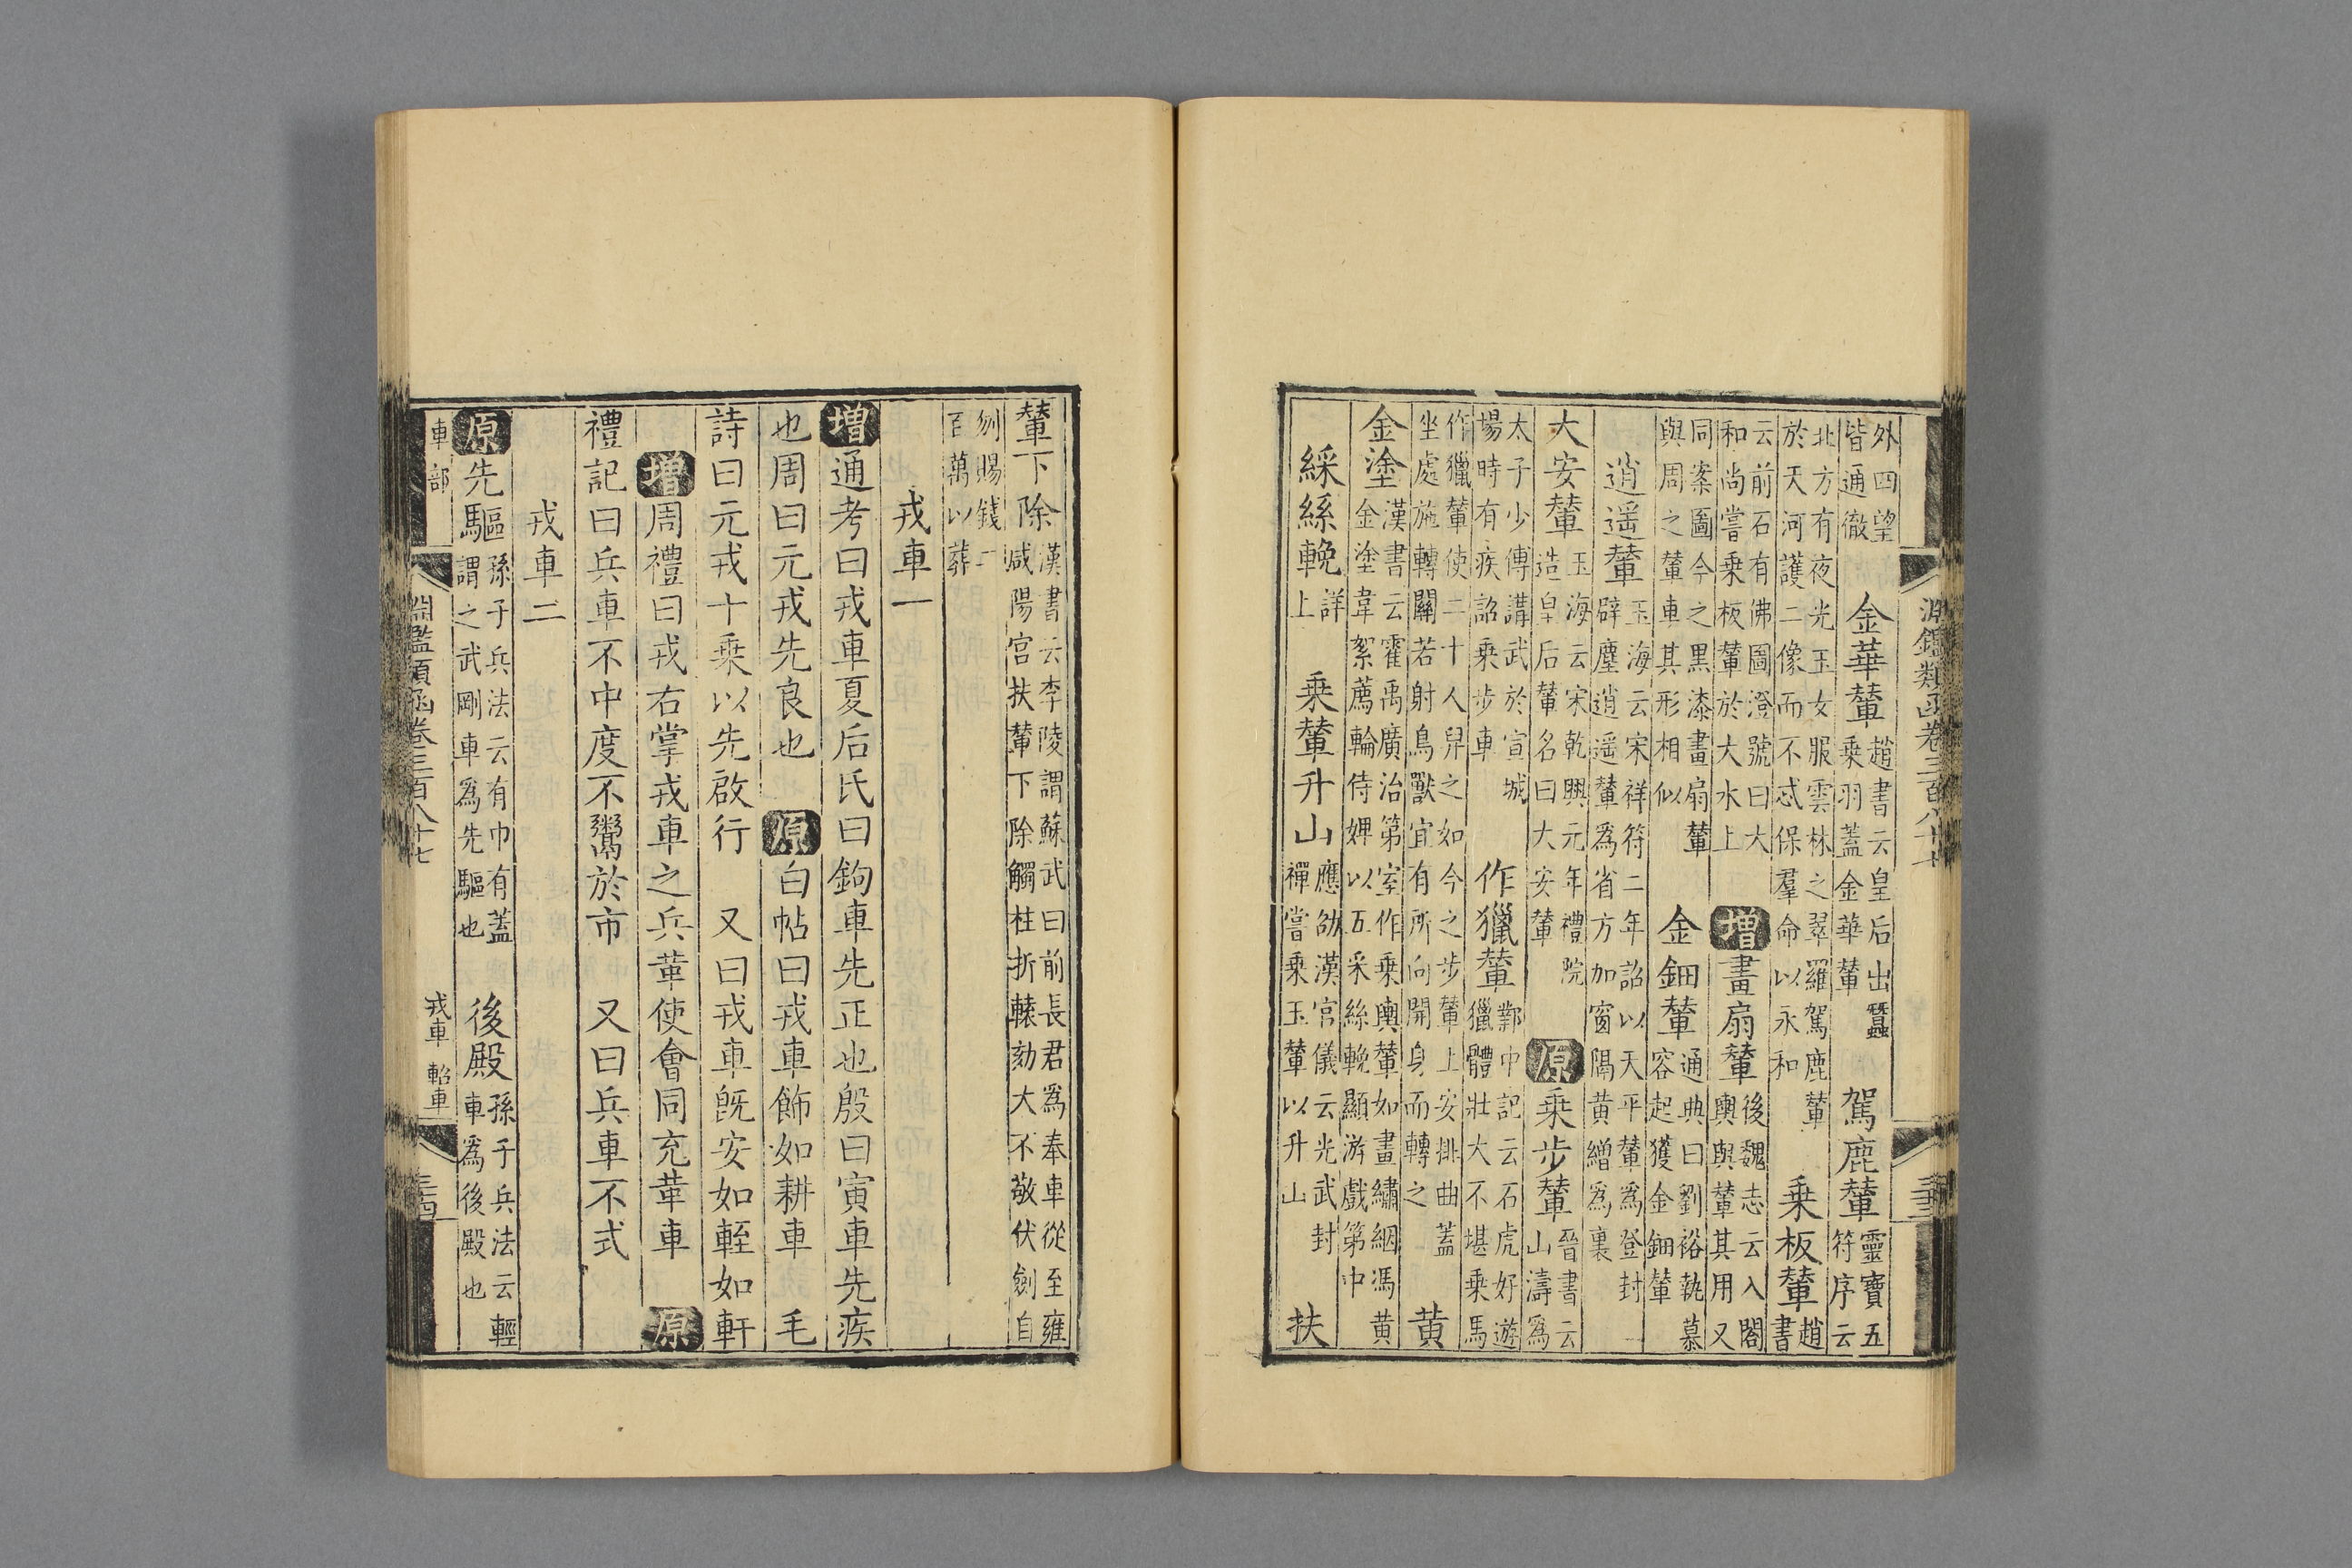 淵鑑類函卷三百八十七
外四望
皆通徹
金華輦
趙書云皇后出蠶
乘羽蓋金華輦
駕鹿輦
靈寶五
符序云
北方有夜光玉女服雲林之翠羅駕鹿輦
於天河護二像而不忒保羣命以永和
乗板輦
趙
書
云前石有佛圖澄號曰大
和尚嘗乗板輦於大水上
增畫扇輦
後魏志云入閣
輿與輦其用又
同案圖今之黑漆畫扇輦
與周之輦車其形相似
金鈿輦
通典曰劉裕執慕
容起獲金鈿輦
逍遥輦
玉海云宋祥符二年詔以天平輦爲登封
辟塵逍遥輦爲省方加窗隔黄繒爲裏
大安輦
玉海云宋乾興元年禮院
造皇后輦名曰大安輦
原乗步輦
晉書云
山濤爲
太子少傅講武於宣城
場時有疾詔乗步車
作獵輦
鄴中記云石虎好遊
獵體壯大不堪乗馬
作獵輦使二十人舁之如今之步輦上安排曲蓋
坐處施轉關若射鳥獸宜有所向關身而轉之
黄
金塗
漢書云霍禹廣治第室作乗輿輦如畫繡絪馮黄
金塗韋絮薦輪侍婢以五采絲輓顯游戲第中
綵絲輓
詳
上
乗輦升山
應劭漢官儀云光武封
禪嘗乗玉輦以升山
扶
輦下除
漢書云李陵謂蘇武曰前長君爲奉車從至雍
咸陽宫扶輦下除觸柱折轅劾大不敬伏劍自
刎賜錢二
百萬以葬
戎車一
增通考曰戎車夏后氏曰鉤車先正也殷曰寅車先疾
也周曰元戎先良也 原白帖曰戎車飾如耕車 毛
詩曰元戎十乗以先啟行 又曰戎車旣安如輊如軒
增周禮曰戎右掌戎車之兵革使會同充革車 原
禮記曰兵車不中度不鬻於市 又曰兵車不式
戎車二
原先驅
孫子兵法云有巾有蓋
謂之武剛車爲先驅也
後殿
孫子兵法云輕
車爲後殿也
車部
淵鑑類函卷三百八十七
戎車 軺車
三十四